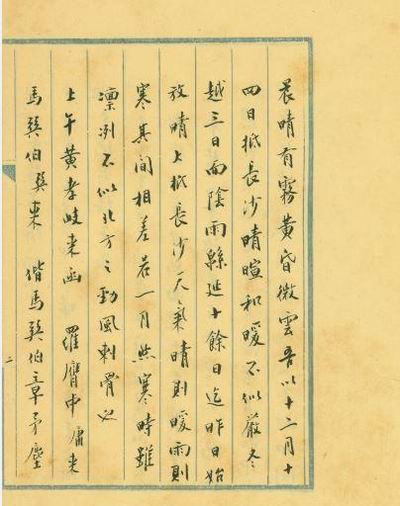 晨晴有霧黃昏微雲吾以十二月十
四日抵長沙晴暄和暖不似嚴冬
越三日而陰雨緜延十餘日迄昨日始
放晴大抵長沙天氣晴則暖雨則
寒其間相差若一月然寒時雖
凛冽不似北方之勁風刺骨也
上午黃孝岐來函 羅膺中庸來
馬巽伯巽來 偕馬巽伯章矛塵
二